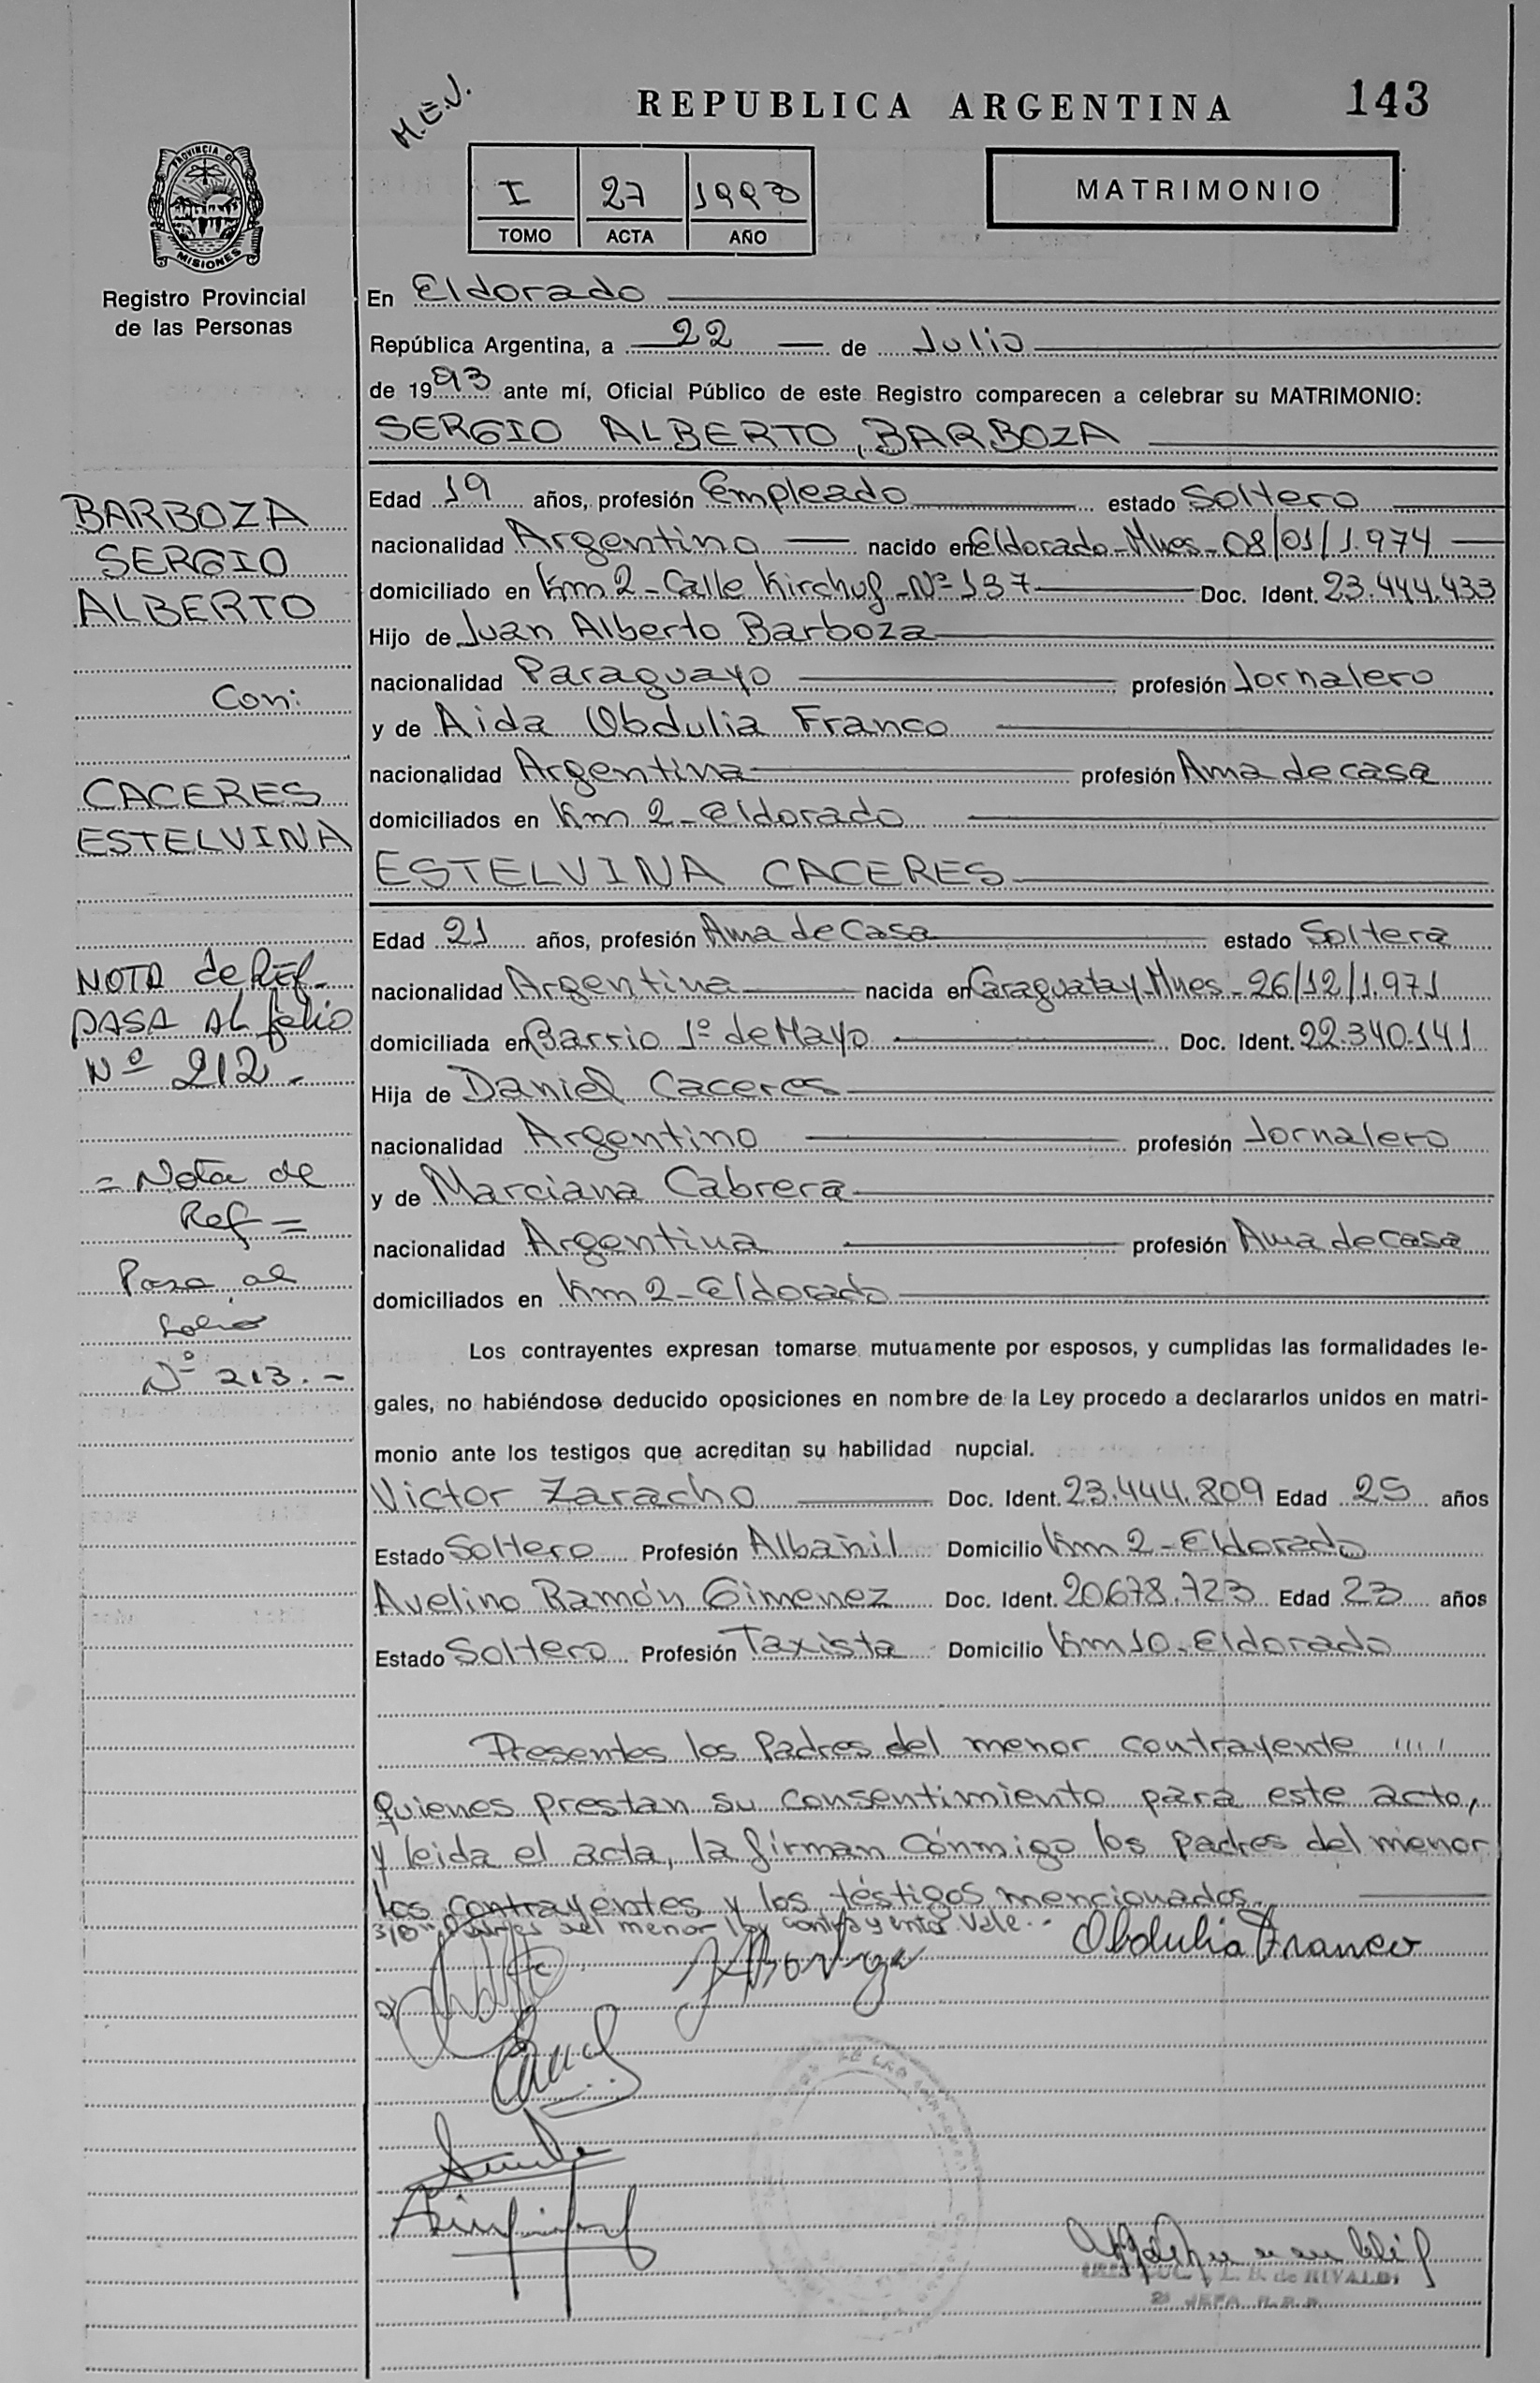 M.E.J.
REPUBLICA ARGENTINA 143
PROVINCIA DE
MISIONES
I 27 1993
TOMO ACTA AÑO
MATRIMONIO
Registro Provincial
de las Personas
En Eldorado
República Argentina, a 22 de Julio
de 1993 ante mí, Oficial Público de este Registro comparecen a celebrar su MATRIMONIO:
SERGIO ALBERTO, BARBOZA
BARBOZA
SERGIO
ALBERTO
Con:
CACERES
ESTELVINA
NOTA de REF.
PASA AL folio
Nº 212.-
= Nota de
Ref =
Pasa al
folio
Nº 213.-
Edad 19 años, profesión Empleado estado Soltero
nacionalidad Argentino nacido en Eldorado-Mnes-08/01/1.974
domiciliado en Km 2-Calle -Nº 137 Doc. Ident. 23.444.433
Hijo de Juan Alberto Barboza
nacionalidad Paraguayo profesión Jornalero
y de Aida Obdulia Franco
nacionalidad Argentina profesión Ama de casa
domiciliados en Km 2-Eldorado
ESTELVINA CACERES
Edad 21 años, profesión Ama de Casa estado Soltera
nacionalidad Argentina nacida en Caraguatay-Mnes-26/12/1.971
domiciliada en Barrio 1º de Mayo Doc. Ident. 22.340.141
Hija de Daniel Caceres
nacionalidad Argentino profesión Jornalero
y de Marciana Cabrera
nacionalidad Argentina profesión Ama de casa
domiciliados en Km 2-Eldorado
Los contrayentes expresan tomarse mutuamente por esposos, y cumplidas las formalidades le-
gales, no habiéndose deducido oposiciones en nombre de la Ley procedo a declararlos unidos en matri-
monio ante los testigos que acreditan su habilidad nupcial.
Victor Zaracho Doc. Ident. 23.444.809 Edad 25 años
Estado Soltero Profesión Albañil Domicilio Km 2-Eldorado
Avelino Ramón Gimenez Doc. Ident. 20.678.723 Edad 23 años
Estado Soltero Profesión Taxista Domicilio Km 10-Eldorado
Presentes los Padres del menor contrayente
quienes prestan su consentimiento para este acto,
y leida el acta, la firman cónmigo los padres del menor
los contrayentes y los téstigos mencionados.
del menor contrayente Vale.-
Obdulia Franco
de RIVALDI